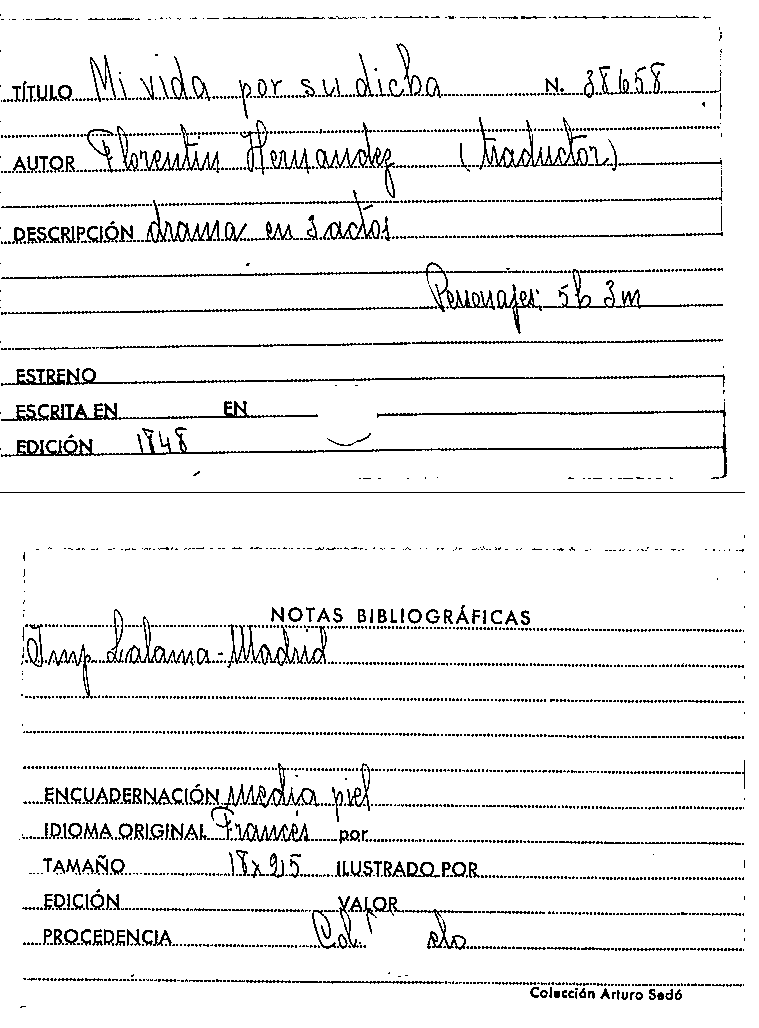 TÍTULO Mi vida por su dicha N. 38658
AUTOR Florentin Hernandez (traductor)
DESCRIPCIÓN drama en 3 actos
Personajes: 5h 3m
ESTRENO
ESCRITA EN EN
EDICIÓN 1848
NOTAS BIBLIOGRÁFICAS
Imp Lalama - Madrid
ENCUADERNACIÓN media piel
IDIOMA ORIGINAL Francés por
TAMAÑO 18x9,5 ILUSTRADO POR
EDICIÓN VALOR
PROCEDENCIA Col.
Colección Arturo Sedó